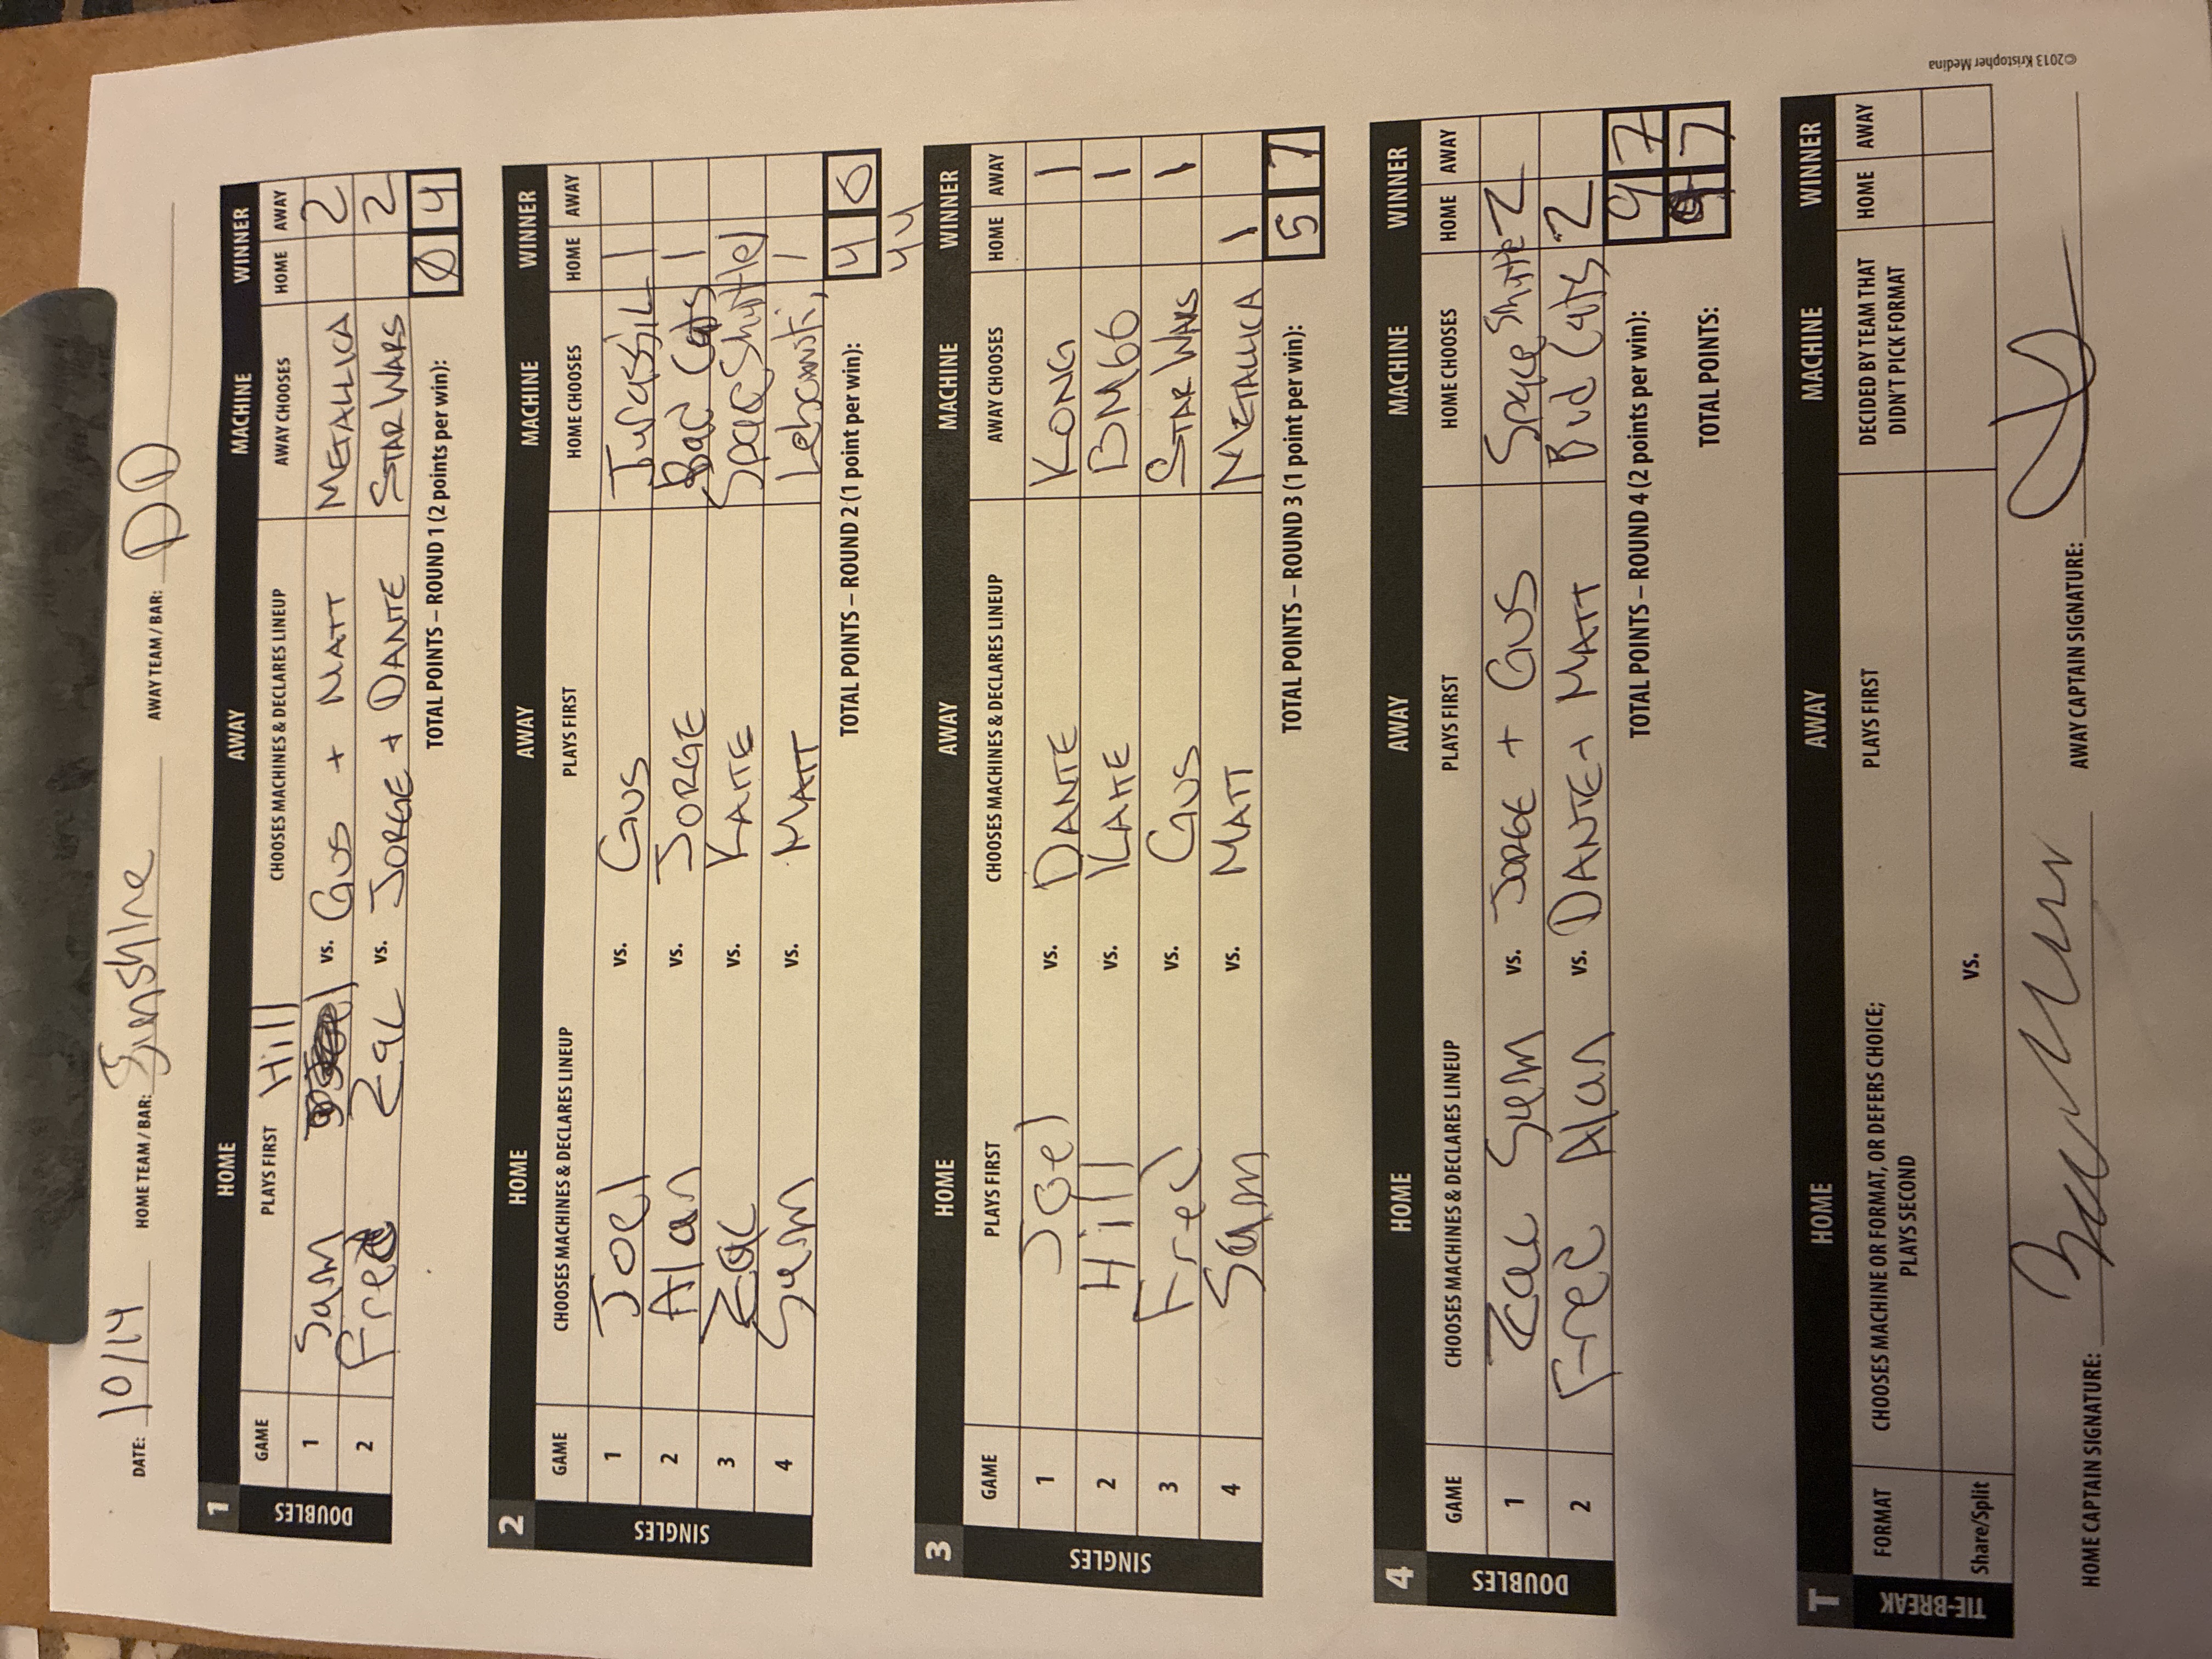 DATE: 10/14 HOME TEAM / BAR: Sunshine AWAY TEAM / BAR: DD
1 HOME AWAY MACHINE WINNER
GAME PLAYS FIRST CHOOSES MACHINES & DECLARES LINEUP AWAY CHOOSES HOME AWAY
DOUBLES
Hill
1 Sam vs. GUS + MATT METALLICA 2
2 Fred Zac vs. JORGE + DANTE STAR WARS 2
TOTAL POINTS – ROUND 1 (2 points per win): 0 4
2 HOME AWAY MACHINE WINNER
GAME CHOOSES MACHINES & DECLARES LINEUP PLAYS FIRST HOME CHOOSES HOME AWAY
SINGLES
1 Joel vs. GUS Jurassic 1
2 Alan vs. JORGE Bad Cats 1
3 Zac vs. KATE Space Shuttle 1
4 Sam vs. MATT 1
TOTAL POINTS – ROUND 2 (1 point per win): 4 0
4 4
3 HOME AWAY MACHINE WINNER
GAME PLAYS FIRST CHOOSES MACHINES & DECLARES LINEUP AWAY CHOOSES HOME AWAY
SINGLES
1 Joel vs. DANTE KONG 1
2 Hill vs. KATE BM66 1
3 Fred vs. GUS STAR WARS 1
4 Sam vs. MATT METALLICA 1
TOTAL POINTS – ROUND 3 (1 point per win): 5 7
4 HOME AWAY MACHINE WINNER
GAME CHOOSES MACHINES & DECLARES LINEUP PLAYS FIRST HOME CHOOSES HOME AWAY
DOUBLES
1 Zac Sam vs. JORGE + GUS Space Shuttle 2
2 Fred Alan vs. DANTE + MATT Bad Cats 2
TOTAL POINTS – ROUND 4 (2 points per win): 9 7
TOTAL POINTS: 9 7
T HOME AWAY MACHINE WINNER
FORMAT CHOOSES MACHINE OR FORMAT, OR DEFERS CHOICE; PLAYS SECOND PLAYS FIRST DECIDED BY TEAM THAT DIDN'T PICK FORMAT HOME AWAY
TIE-BREAK
Share/Split vs.
HOME CAPTAIN SIGNATURE: AWAY CAPTAIN SIGNATURE:
©2013 Kristopher Medina